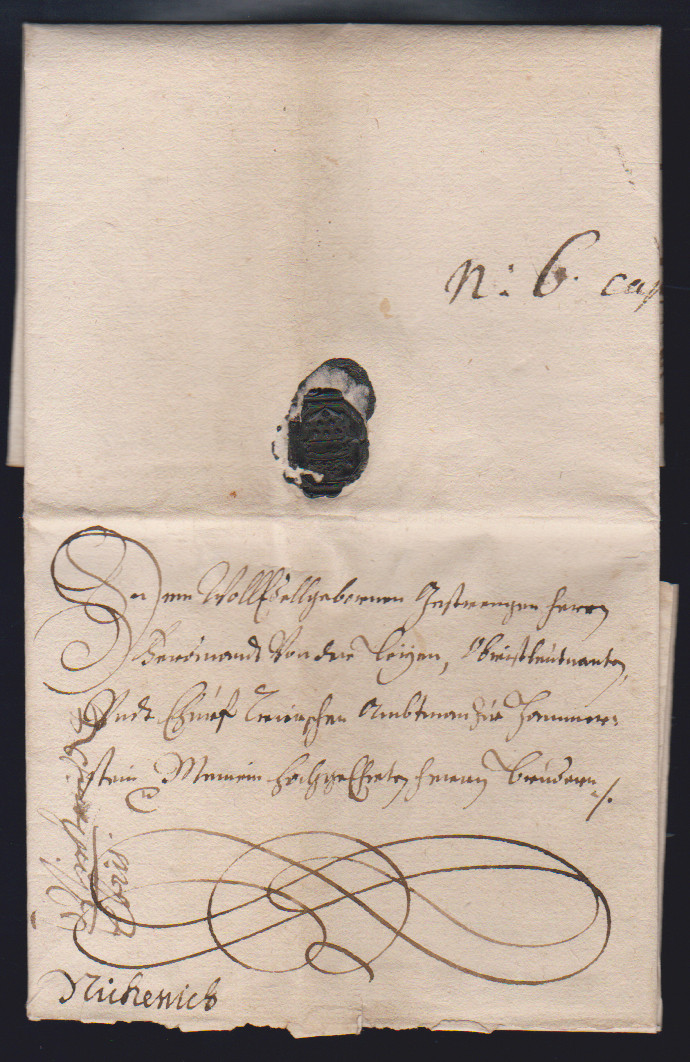 n: 6. cap
Dem WollEdellgebornen Gestrengen Herrn
Ferdinandt Von der Leÿen, Obristleutnanten,
Undt Churf Trierschen Ambtman Zur Hammer:
stein Meinem HochgeEhrten Herrn Brudern
Nickenich